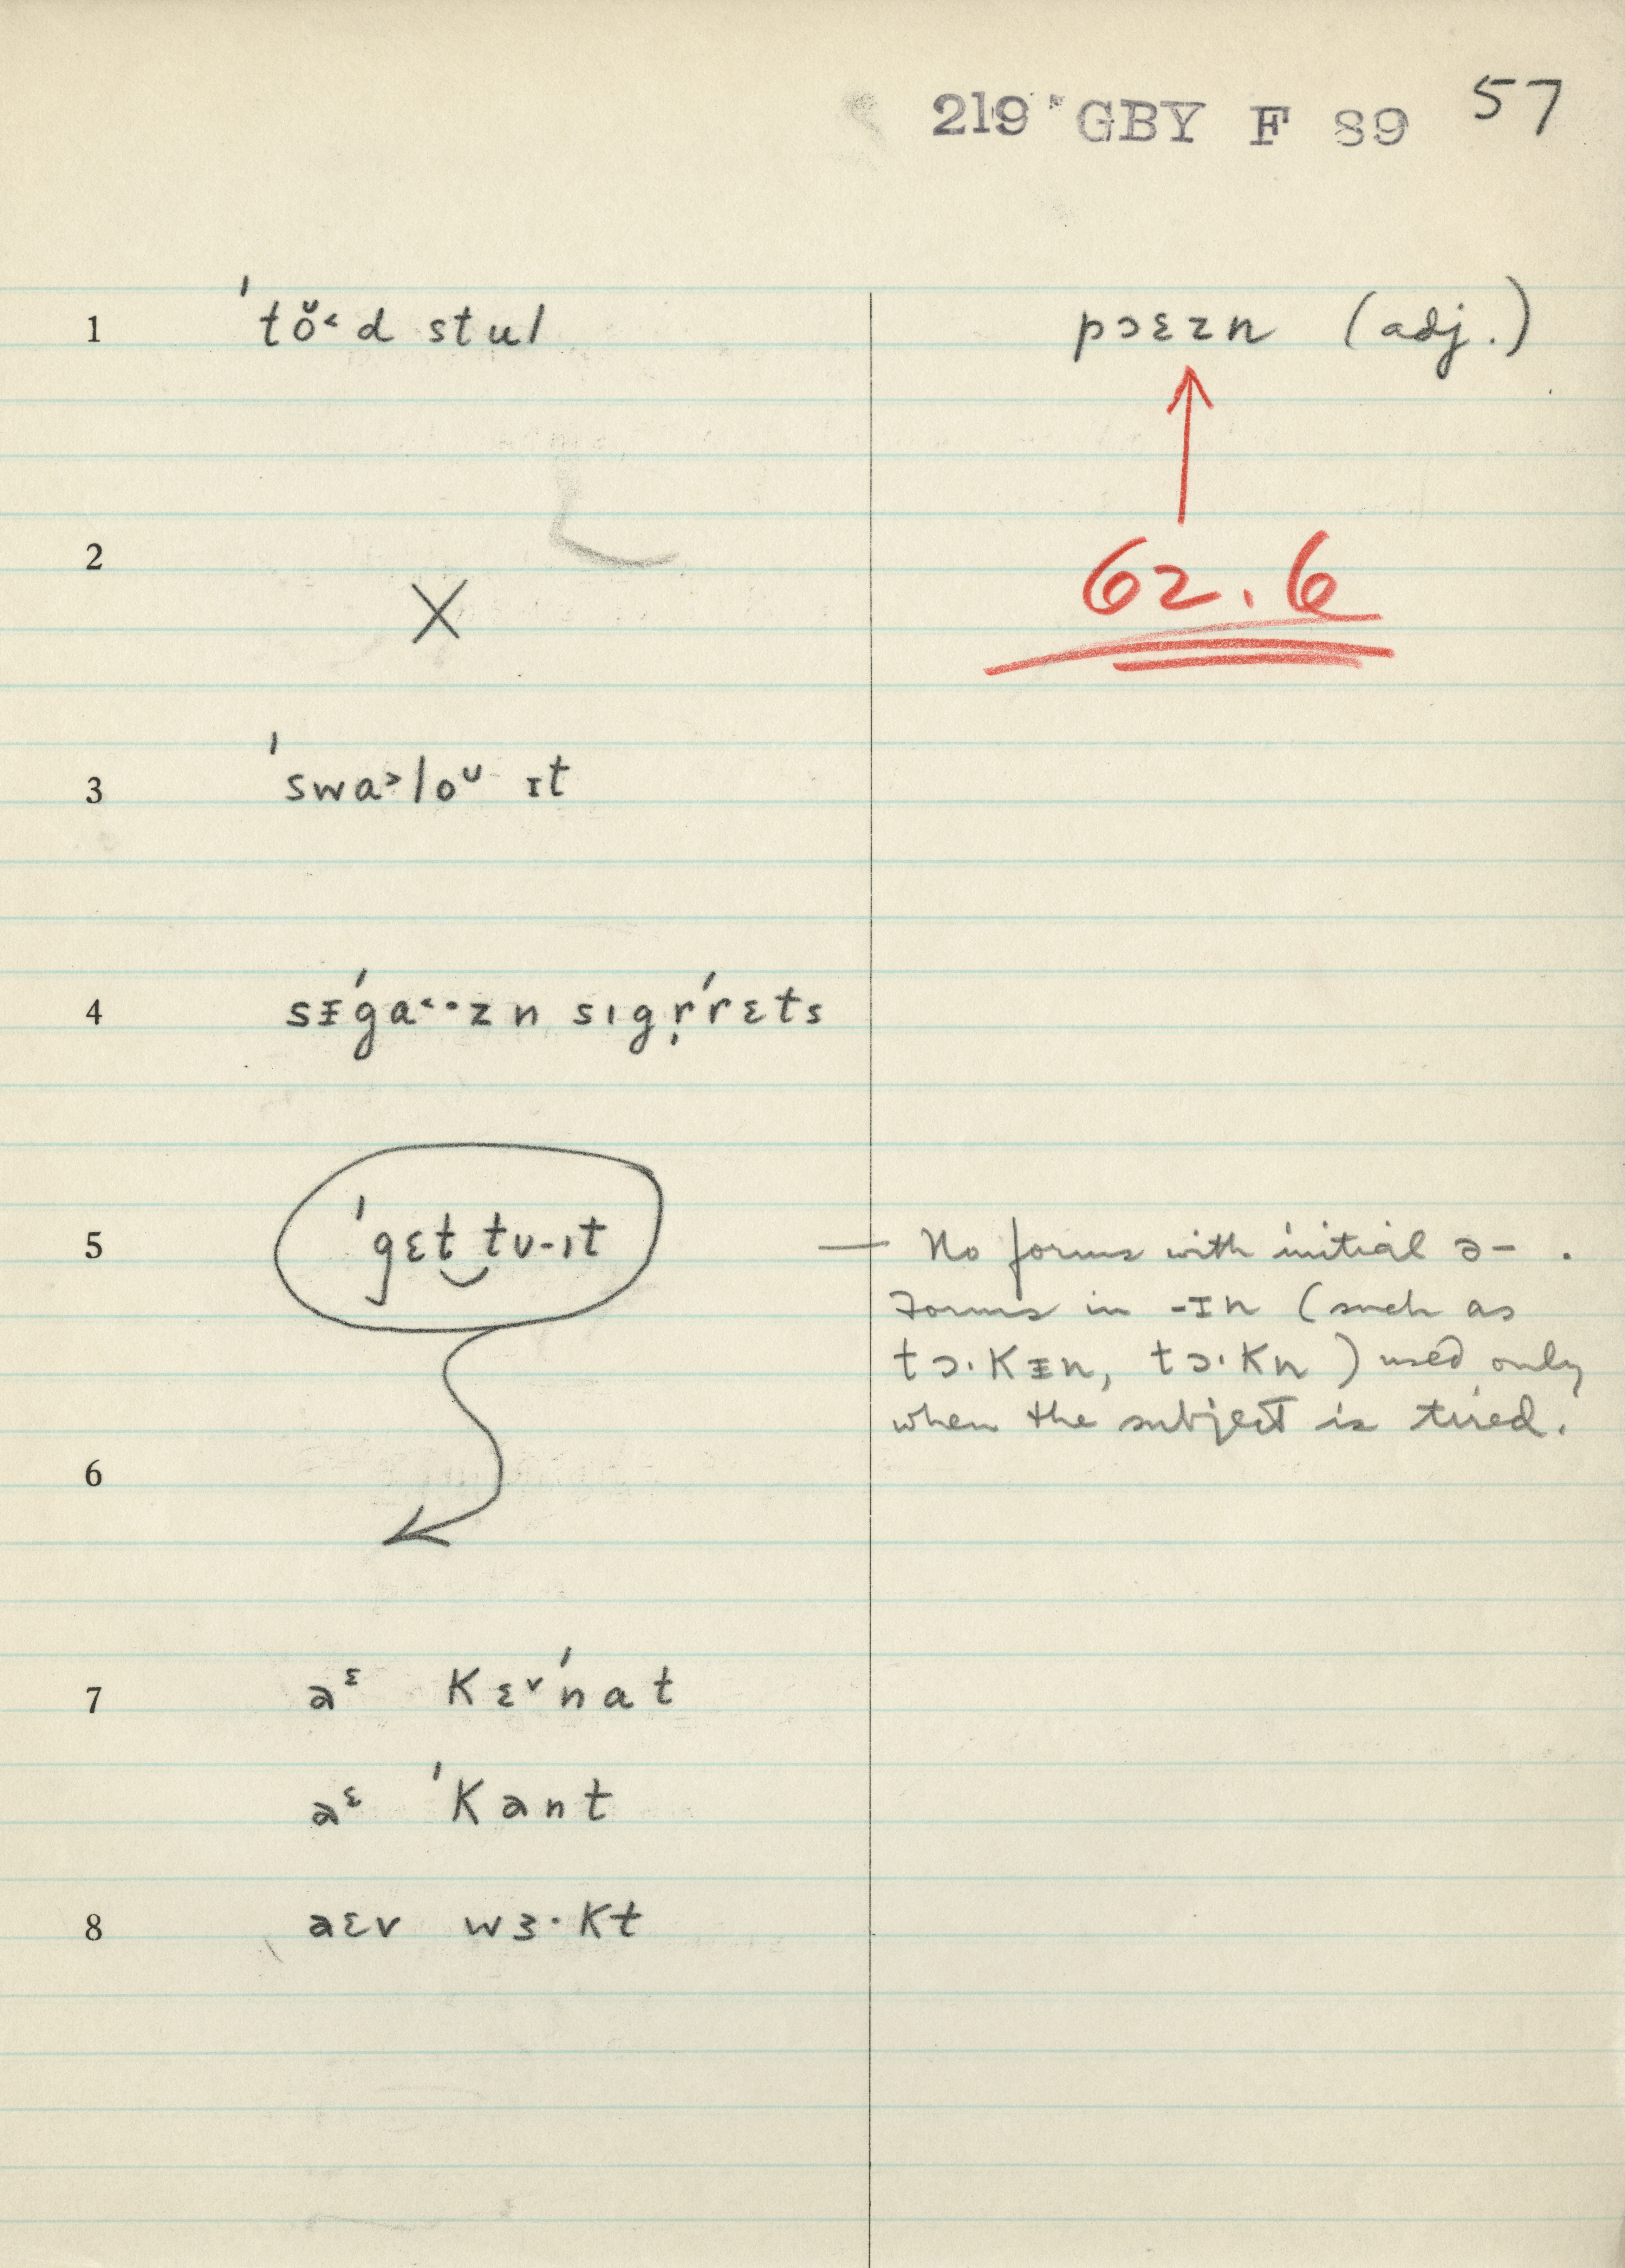 219 GBY F 89 57
1 ˈtŏ˂d stul pɔɛzn (adj.)
2 X 62.6
3 ˈswa˃loᴜ ɪt
4 sᵻˈga˂·zn sıgr̩ˈrɛts
5 ˈgɛt‿tᴜ-ıt — No forms with initial ə- .
Forms in -ɪn (such as
tɔ·Kᵻn, tɔ·Kn) used only
when the subject is tired.
6
7 aᵋ Kɛ˅ˈnat
aᵋ ˈKant
8 aɛv wɜ·Kt